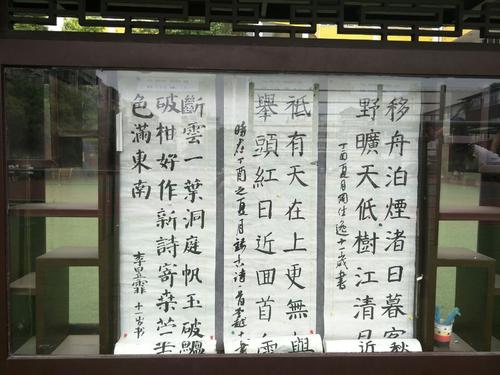 移舟泊煙渚日暮客
野曠天低樹江清月近
丁酉夏月周仕逸十一歲書
祗有天在上更無與
舉頭紅日近回首
時在丁酉之夏月
斷雲一葉洞庭帆玉破鱸
破柑好作新詩寄桑苎
色滿東南
李昱霏十一岁书